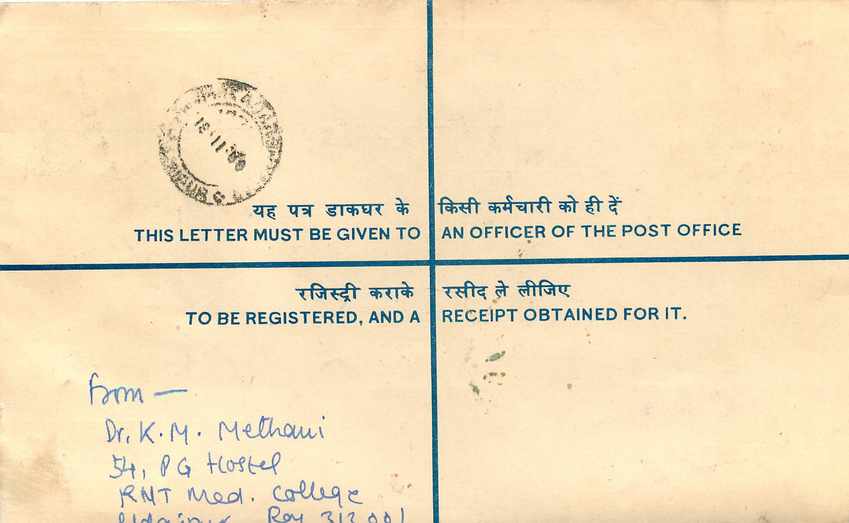 18.11.
यह पत्र डाकघर के किसी कर्मचारी को ही दें
THIS LETTER MUST BE GIVEN TO AN OFFICER OF THE POST OFFICE
रजिस्ट्री कराके रसीद ले लीजिए
TO BE REGISTERED, AND A RECEIPT OBTAINED FOR IT.
From —
Dr. K. M. Methani
54, PG Hostel
RNT Med. College
Udaipur Raj 313001